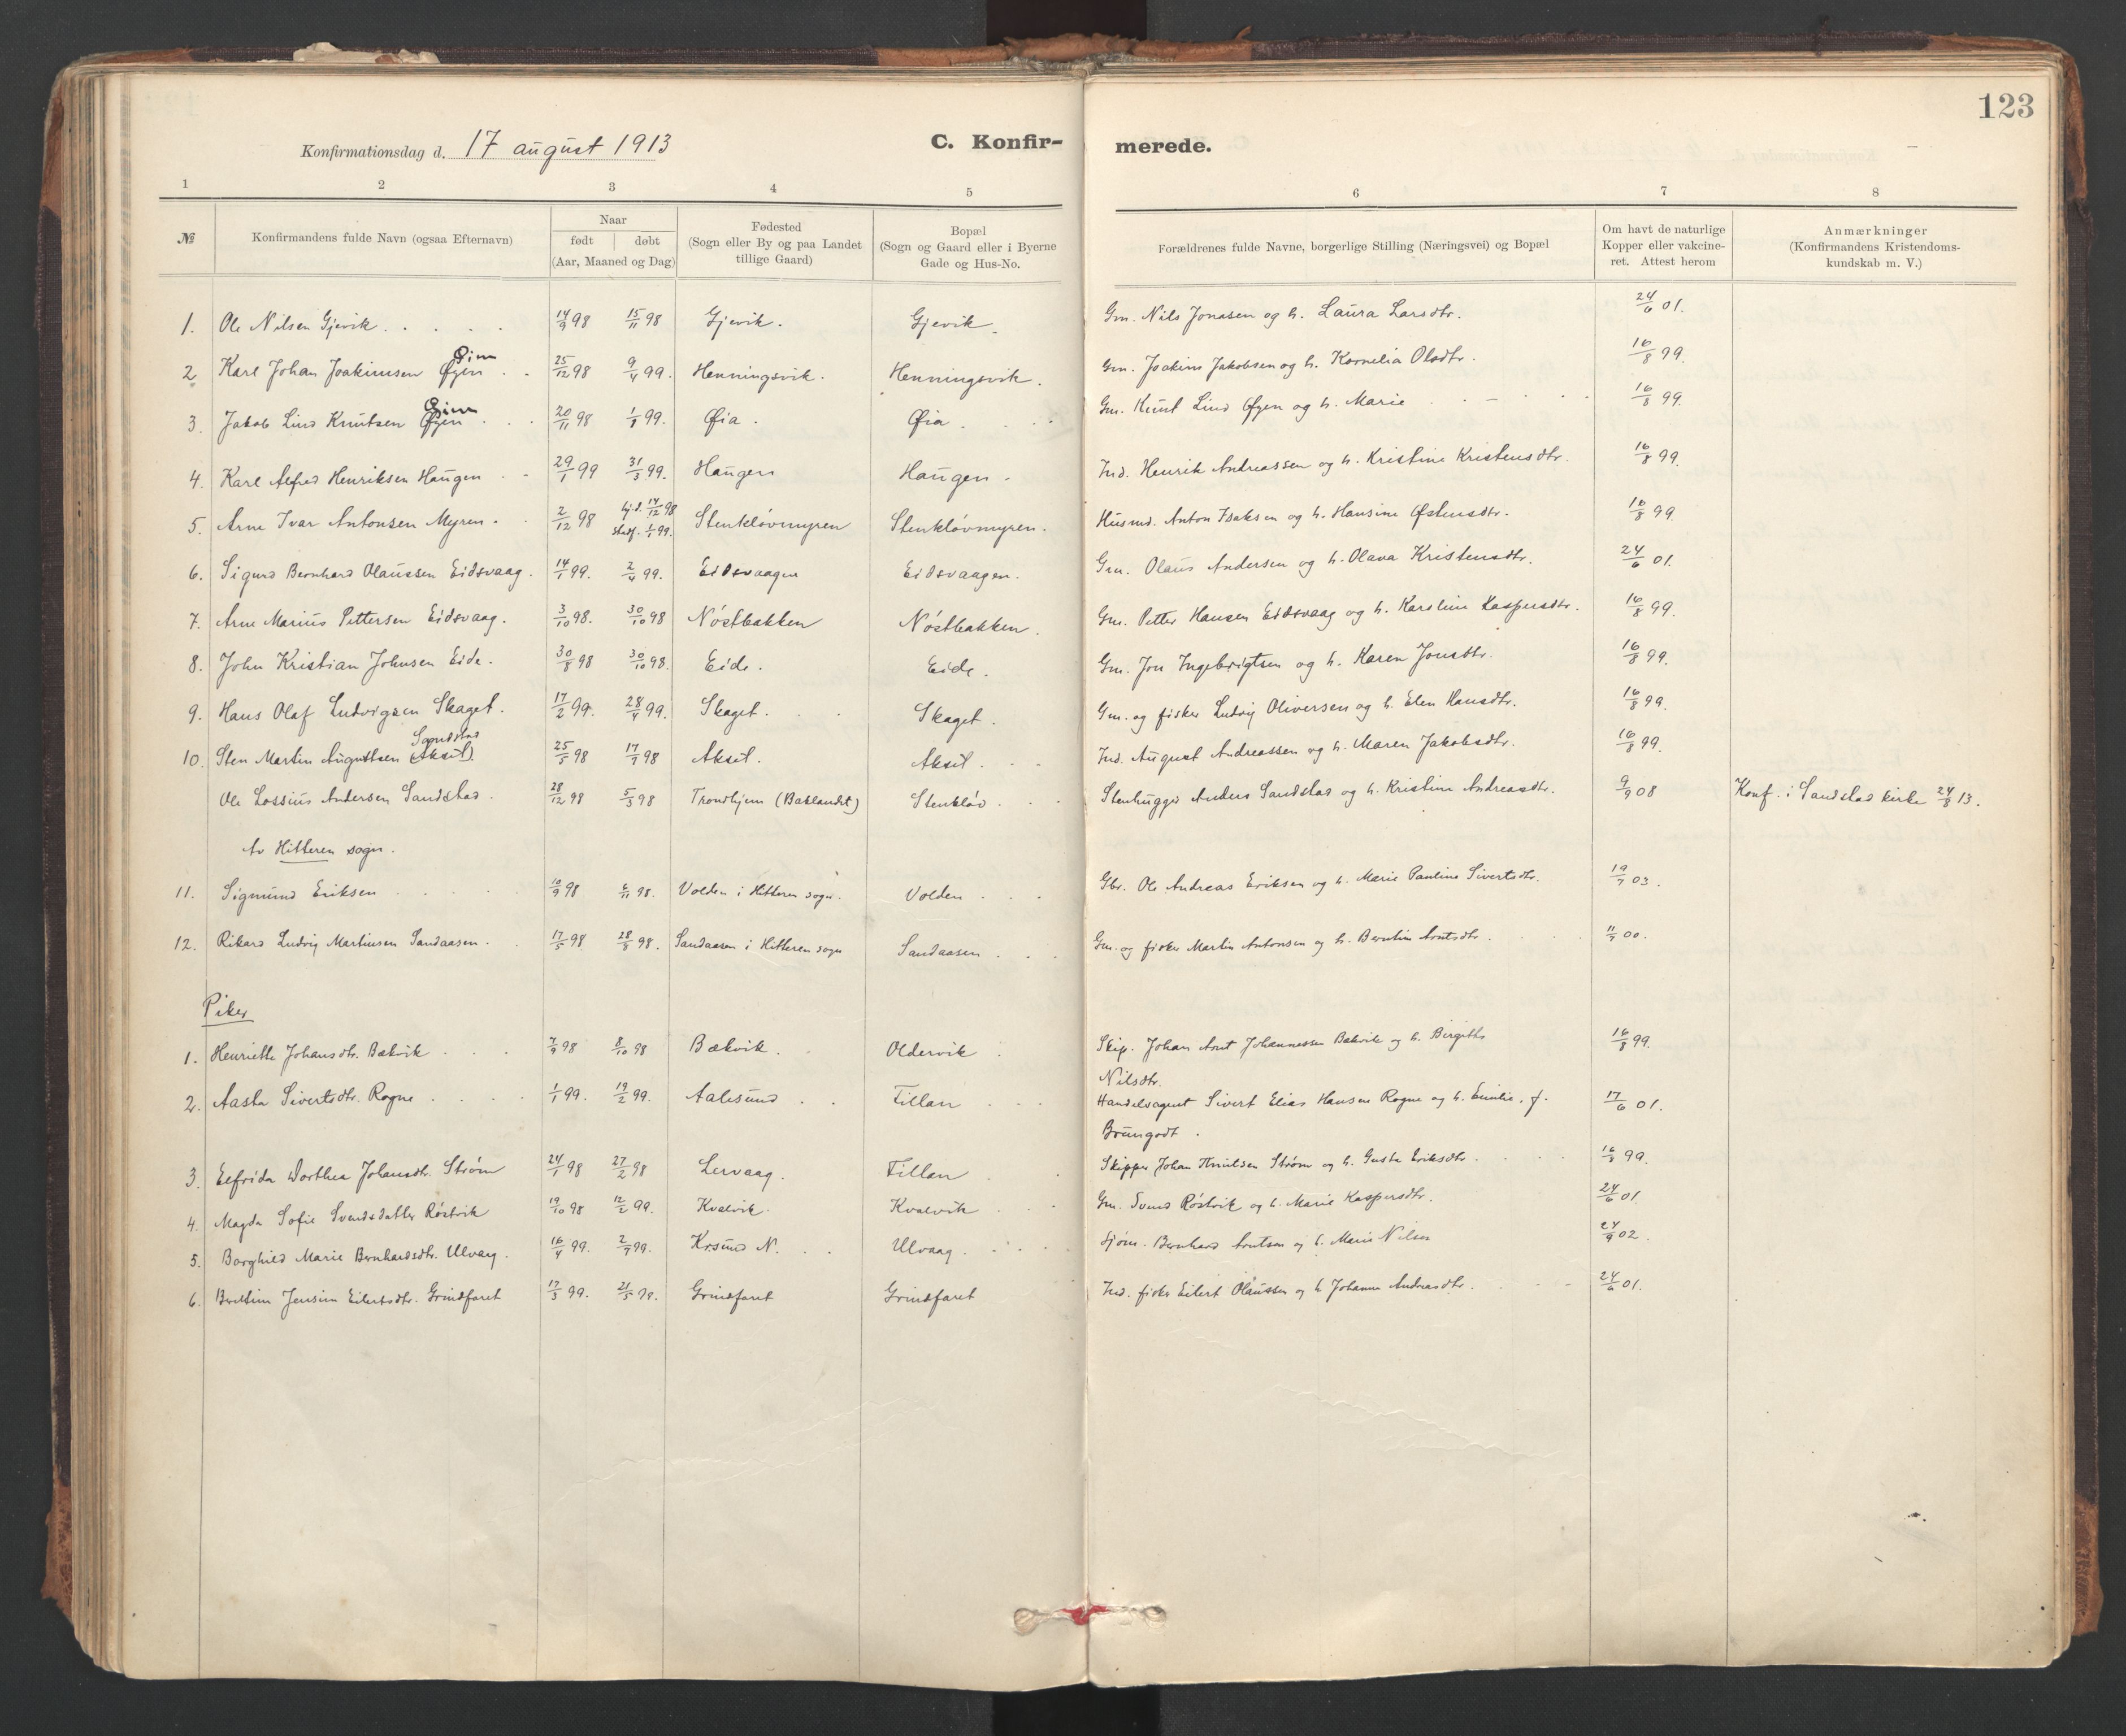 123
Konfirmationsdag d. 17 august 1913 C. Konfir- merede.
1 2 3 4 5 6 7 8
№ Konfirmandens fulde Navn (ogsaa Efternavn) Naar født døbt (Aar, Maaned og Dag) Fødested (Sogn eller By og paa Landet tillige Gaard) Bopæl (Sogn og Gaard eller i Byerne Gade og Hus-No. Forældrenes fulde Navne, borgerlige Stilling (Næringsvei) og Bopæl Om havt de naturlige Kopper eller vakcineret. Attest herom Anmærkninger (Konfirmandens Kristendoms- kundskab m. V.)
1. Ole Nilsen Gjevik. 14/9 98 15/11 98 Gjevik. Gjevik. Gm. Nils Jonasen og h. Laura Larsdtr. 24/6 01.
2. Karl Johan Joakimsen Øyen Øien 25/12 98 9/4 99. Henningsvik. Henningsvik. Gm. Joakim Jakobsen og h. Kornelia Olsdtr. 16/8 99.
3. Jakob Lind Knutsen Øyen Øien 20/11 98 1/1 99. Øia. Øia. Gm. Knut Lind Øyen og h. Marie 16/8 99.
4. Karl Alfred Henriksen Haugen 29/1 99 31/3 99. Haugen Haugen. Ind. Henrik Andreassen og h. Kristine Kristensdtr. 16/8 99.
5. Arne Ivar Antonsen Myren. 2/12 98 hj.d. 14/12 98 stadf. 1/1 99. Stenkløvmyren Stenkløvmyren. Husmd. Anton Isaksen og h. Hansine Østensdtr. 16/8 99.
6. Sigurd Bernhard Olaussen Eidsvaag. 14/1 99. 2/4 99. Eidsvaagen Eidsvaagen. Gm. Olaus Andersen og h. Olava Kristensdtr. 24/6 01.
7. Arne Marius Pettersen Eidsvaag. 3/10 98. 30/10 98 Nøstbakken Nøstbakken. Gm. Petter Hansen Eidsvaag og h. Karoline Kaspersdtr. 16/8 99.
8. John Kristian Johnsen Eide. 30/8 98 30/10 98. Eide. Eide. Gm. Jon Ingebrigtsen og h. Karen Jonsdtr. 16/8 99.
9. Hans Olaf Ludvigsen Skaget. 17/2 99. 28/4 99. Skaget. Skaget. Gm. og fisker Ludvig Oliversen og h. Elen Hansdtr. 16/8 99.
10. Sten Martin Augustsen (Akset) Sandstad 25/5 98 17/7 98 Akset. Akset. Ind. August Andreassen og h. Maren Jakobsdtr. 16/8 99.
Ole Lossius Andersen Sandstad. 28/12 98 5/3 98 Trondhjem (Baklandet) Stenkløv. Stenhugger Anders Sandstad og h. Kristine Andreasdtr. 9/9 08 Konf. i Sandstad kirke 24/8 13.
Av Hitteren sogn.
11. Sigmund Eriksen 10/9 98 6/11 98. Volden i Hitteren sogn. Volden Gbr. Ole Andreas Eriksen og h. Marie Pauline Sivertsdtr. 19/7 03.
12. Rikard Ludvig Martinsen Sandaasen. 17/5 98 28/8 98. Sandaasen i Hitteren sogn Sandaasen Gm. og fisker Martin Antonsen og h. Berntine Arntsdtr. 11/7 00.
Piker
1. Henriette Johansdtr. Bækvik 7/9 98 8/10 98 Bækvik. Oldervik Skip. Johan Arnt Johannessen Bækvik og h. Birgitte
Nilsdtr. 16/8 99.
2. Aasta Sivertsdtr. Rogne 1/1 99. 19/2 99. Aalesund Fillan Handelsagent Sivert Elias Hansen Rogne og h. Emilie, f.
Brungodt. 17/6 01.
3. Elfrida Dorthea Johansdtr. Strøm 24/1 98 27/2 98 Lervaag. Fillan Skipper Johan Knutsen Strøm og h. Gusta Eriksdtr. 16/8 99.
4. Magda Sofie Svendsdatter Røstvik 19/10 98 12/2 99. Kvalvik. Kvalvik Gm. Svend Røstvik og h. Marie Kaspersdtr. 24/6 01.
5. Borghild Marie Bernhardsdtr. Ulvaag. 16/4 99. 2/7 99. Krsund N. Ulvaag. Sjøm. Bernhard Arntsen og h. Marie Nilsen 24/9 02.
6. Berntine Jensine Eilertsdtr. Grindfaret 17/3 99. 21/5 99. Grindfaret Grindfaret Ind. fisker Eilert Olaussen og h. Johanna Andreasdtr. 24/6 01.